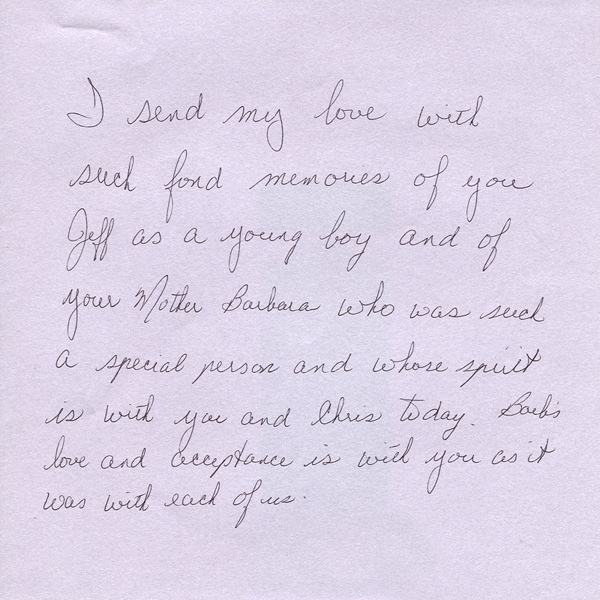 I send my love with
such fond memories of you
Jeff as a young boy and of
your Mother Barbara who was such
a special person and whose spirit
is with you and Chris today. Barb's
love and acceptance is with you as it
was with each of us.